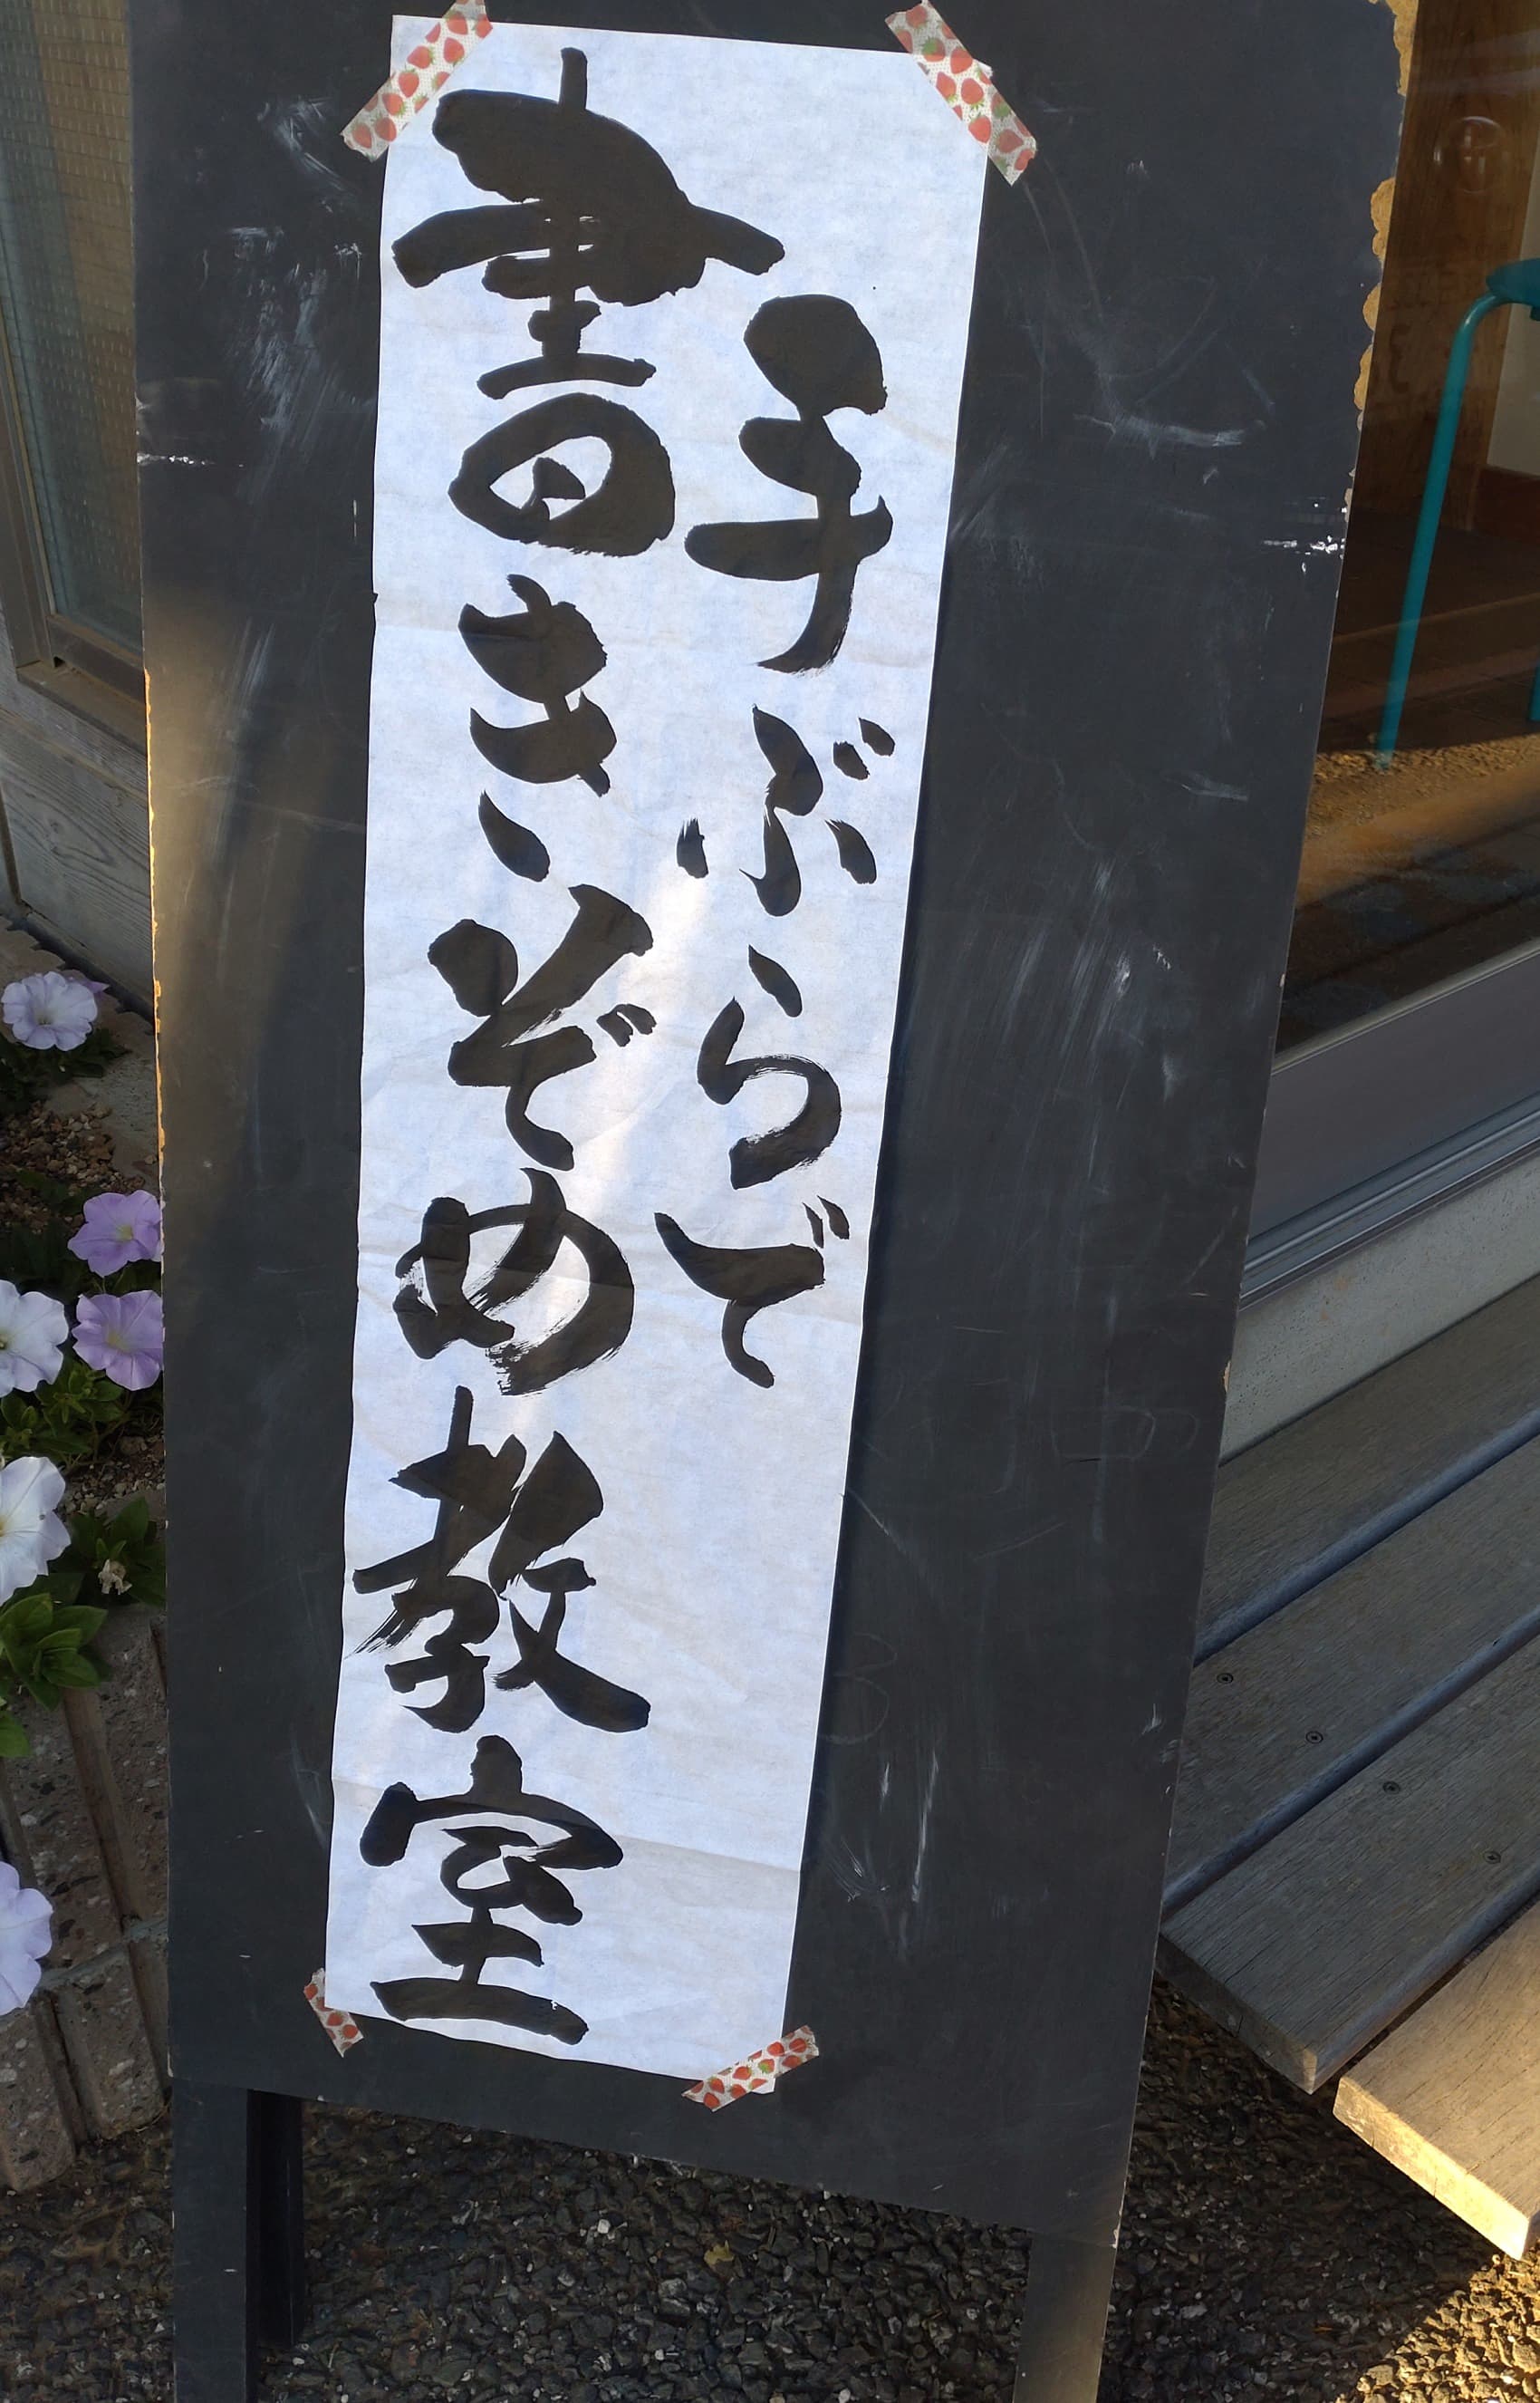 手ぶらで
書きぞめ教室